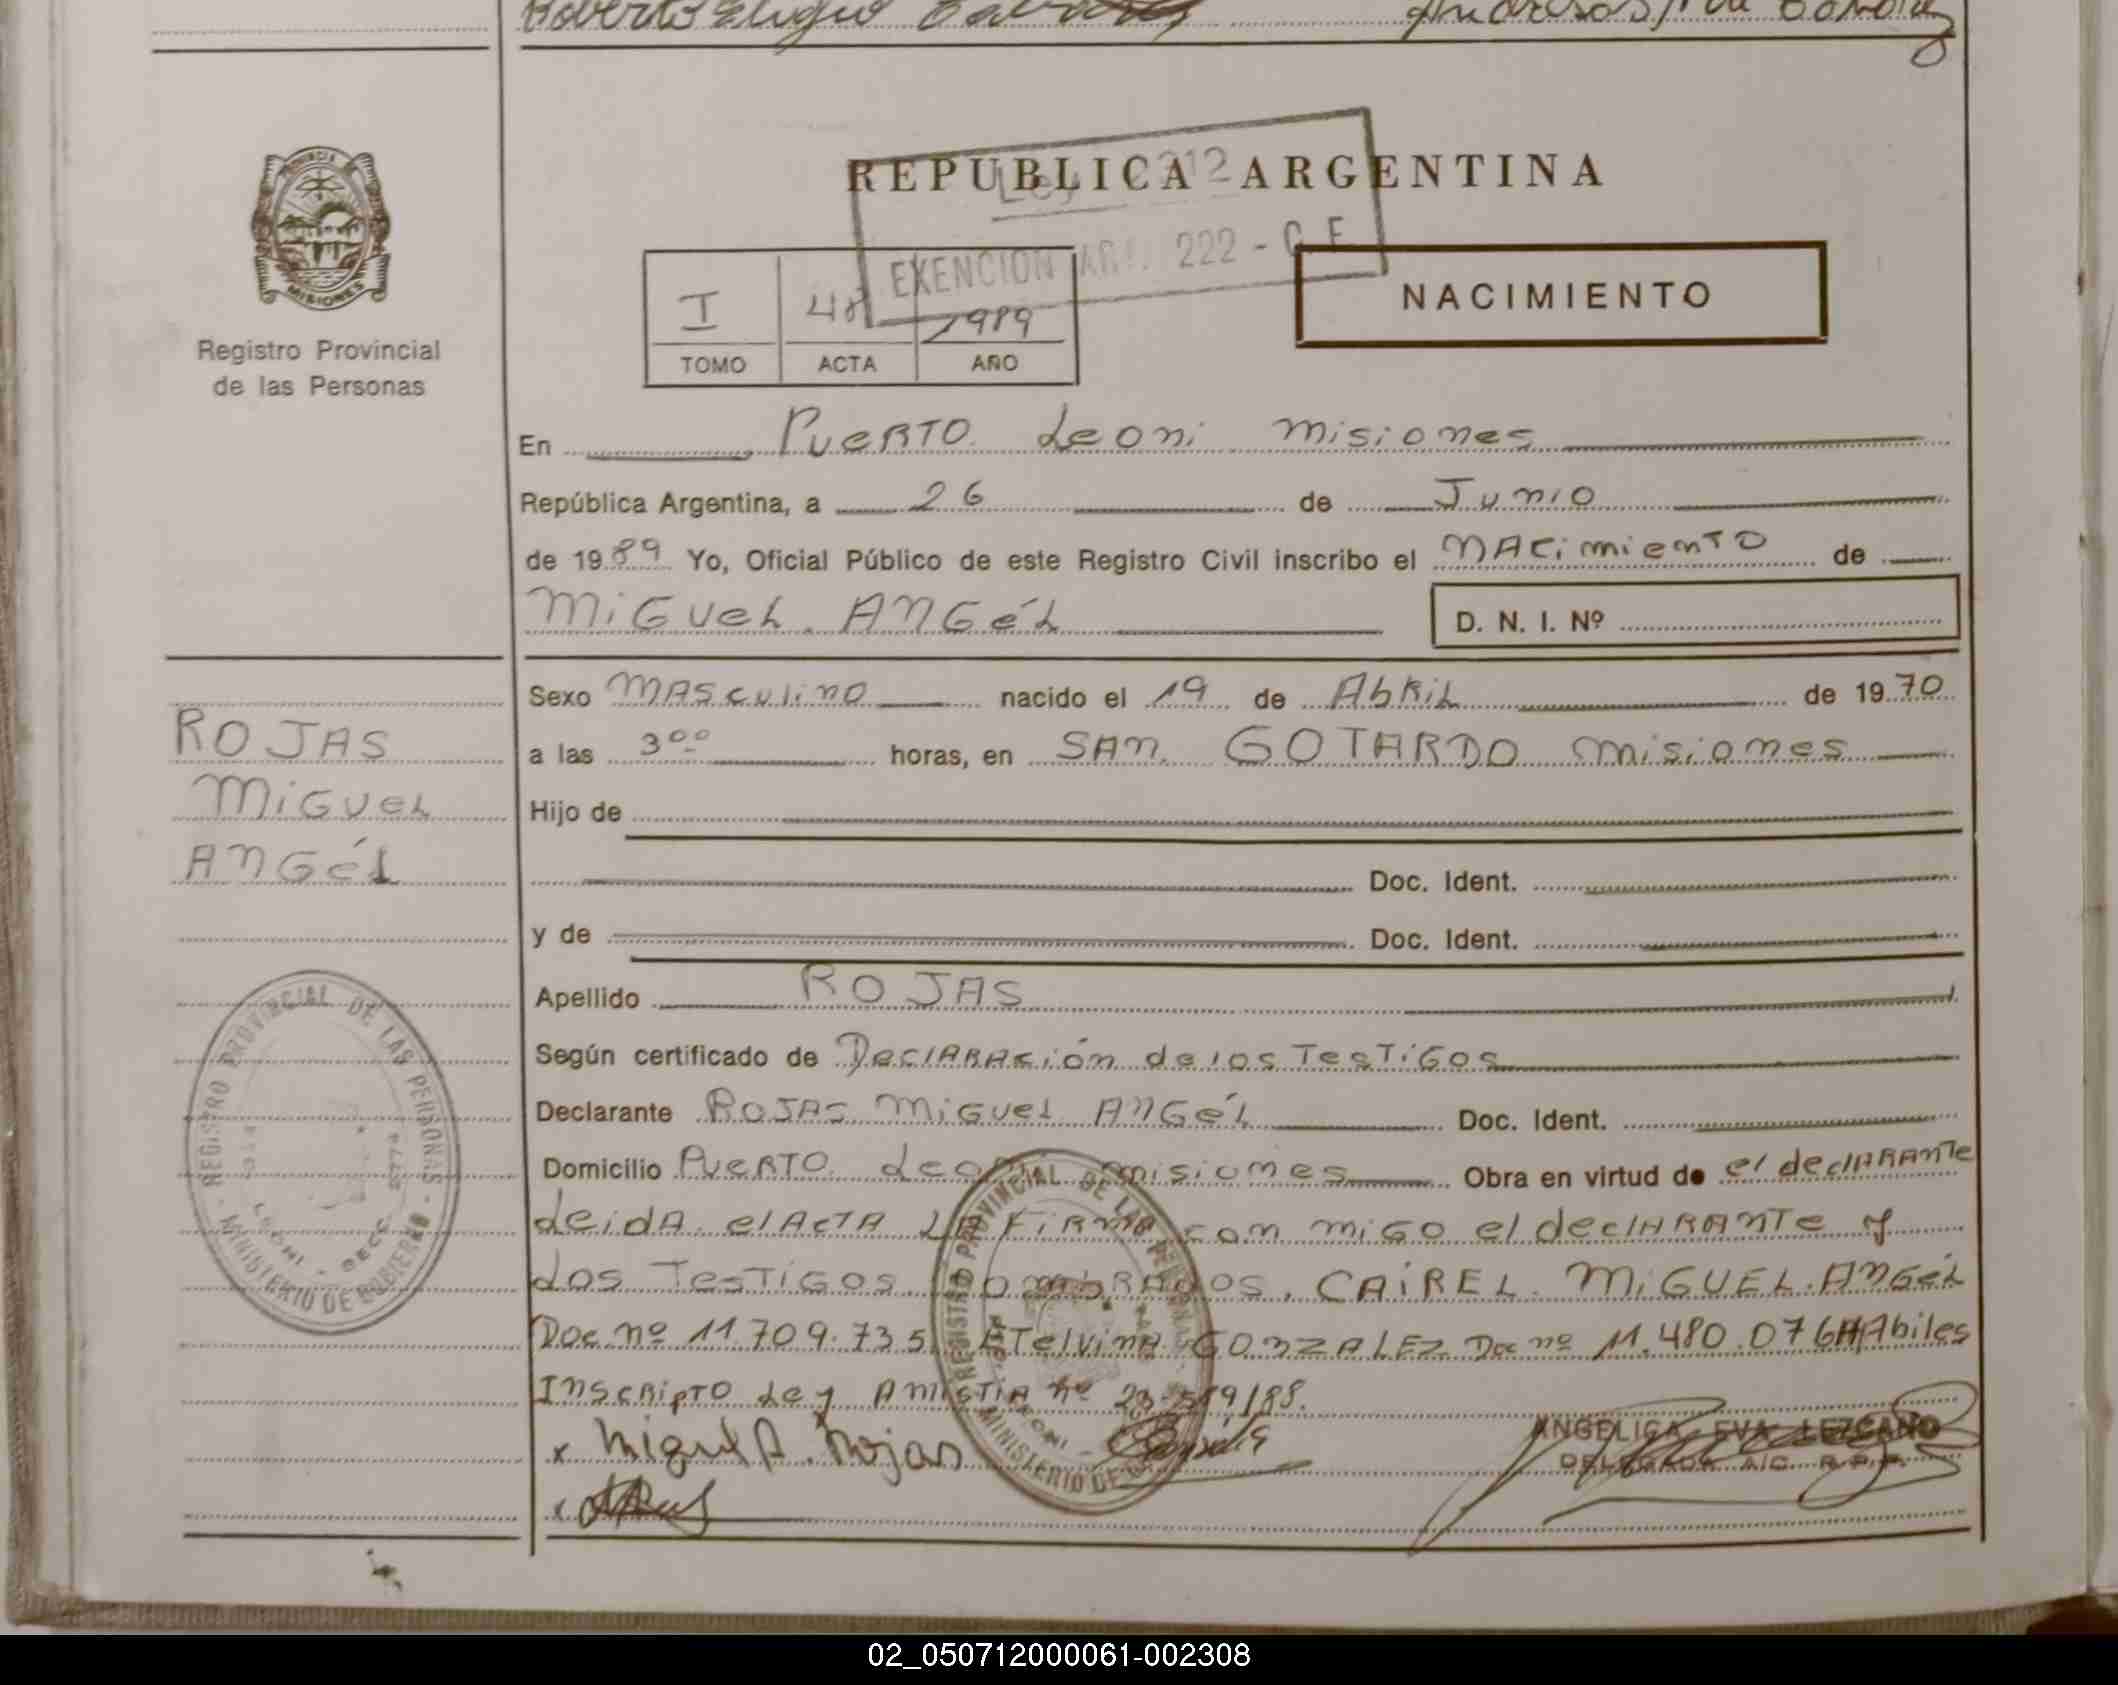 Roberto Eligio
REPUBLICA ARGENTINA
EXENCION ART. 222 - C.F.
NACIMIENTO
I 48 1989
TOMO ACTA AÑO
Registro Provincial
de las Personas
PROVINCIA
MISIONES
En PUERTO Leoni misiones
República Argentina, a 26 de Junio
de 1989 Yo, Oficial Público de este Registro Civil inscribo el NACimiento de
MiGUeL ANGéL
D. N. I. Nº
Sexo MASculino nacido el 19 de AbRiL de 1970
a las 3⁰⁰ horas, en SAN GOTARDO misiones
Hijo de
Doc. Ident.
y de Doc. Ident.
Apellido ROJAS
Según certificado de DeclARAción de los TesTiGos
Declarante ROJAS MiGuel ANGéL Doc. Ident.
Domicilio PUERTO Leoni misiones Obra en virtud de el declARANTe
Leida el ActA LA FiRmA con miGo el declARANTe y
Los TesTiGos nombRADOS, CAiREL MiGUEL ANGéL
Doc nº 11.709.735 ETelvinA GONZALEZ Doc nº 11.480.076 HAbiles
InscRipTO Ley AmisTiA nº 23.519/88.
x Miguel A. Rojas
x
ANGELICA EVA LEZCANO
DELEGADA A/C. R.P.P.
ROJAS
MiGUeL
ANGéL
REGISTRO PROVINCIAL DE LAS PERSONAS
LEONI - DECR
MINISTERIO DE GOBIERNO
REGISTRO PROVINCIAL DE LAS PERSONAS
LEONI
MINISTERIO DE
02_050712000061-002308